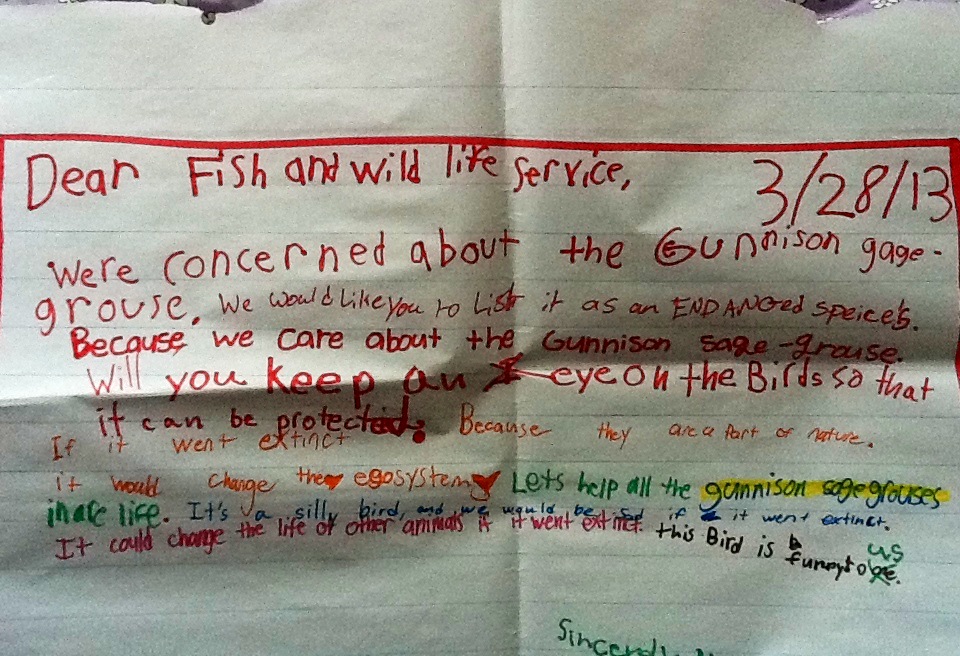 Dear Fish and wild life service,
3/28/13
were concerned about the Gunnison gage-
grouse. We would like you to list it as an ENDANGed speices.
Because we care about the Gunnison sage-grouse.
Will you keep an eye on the Birds so that
it can be protected. Because they are a Part of nature.
If it went extinct
it would change the egosystem Lets help all the gunnison sage grouses
in are life. It's a silly bird, and we would be sad if it went extinct.
It could change the life of other animals if it went extinct. this Bird is funny to us.
Sincerely